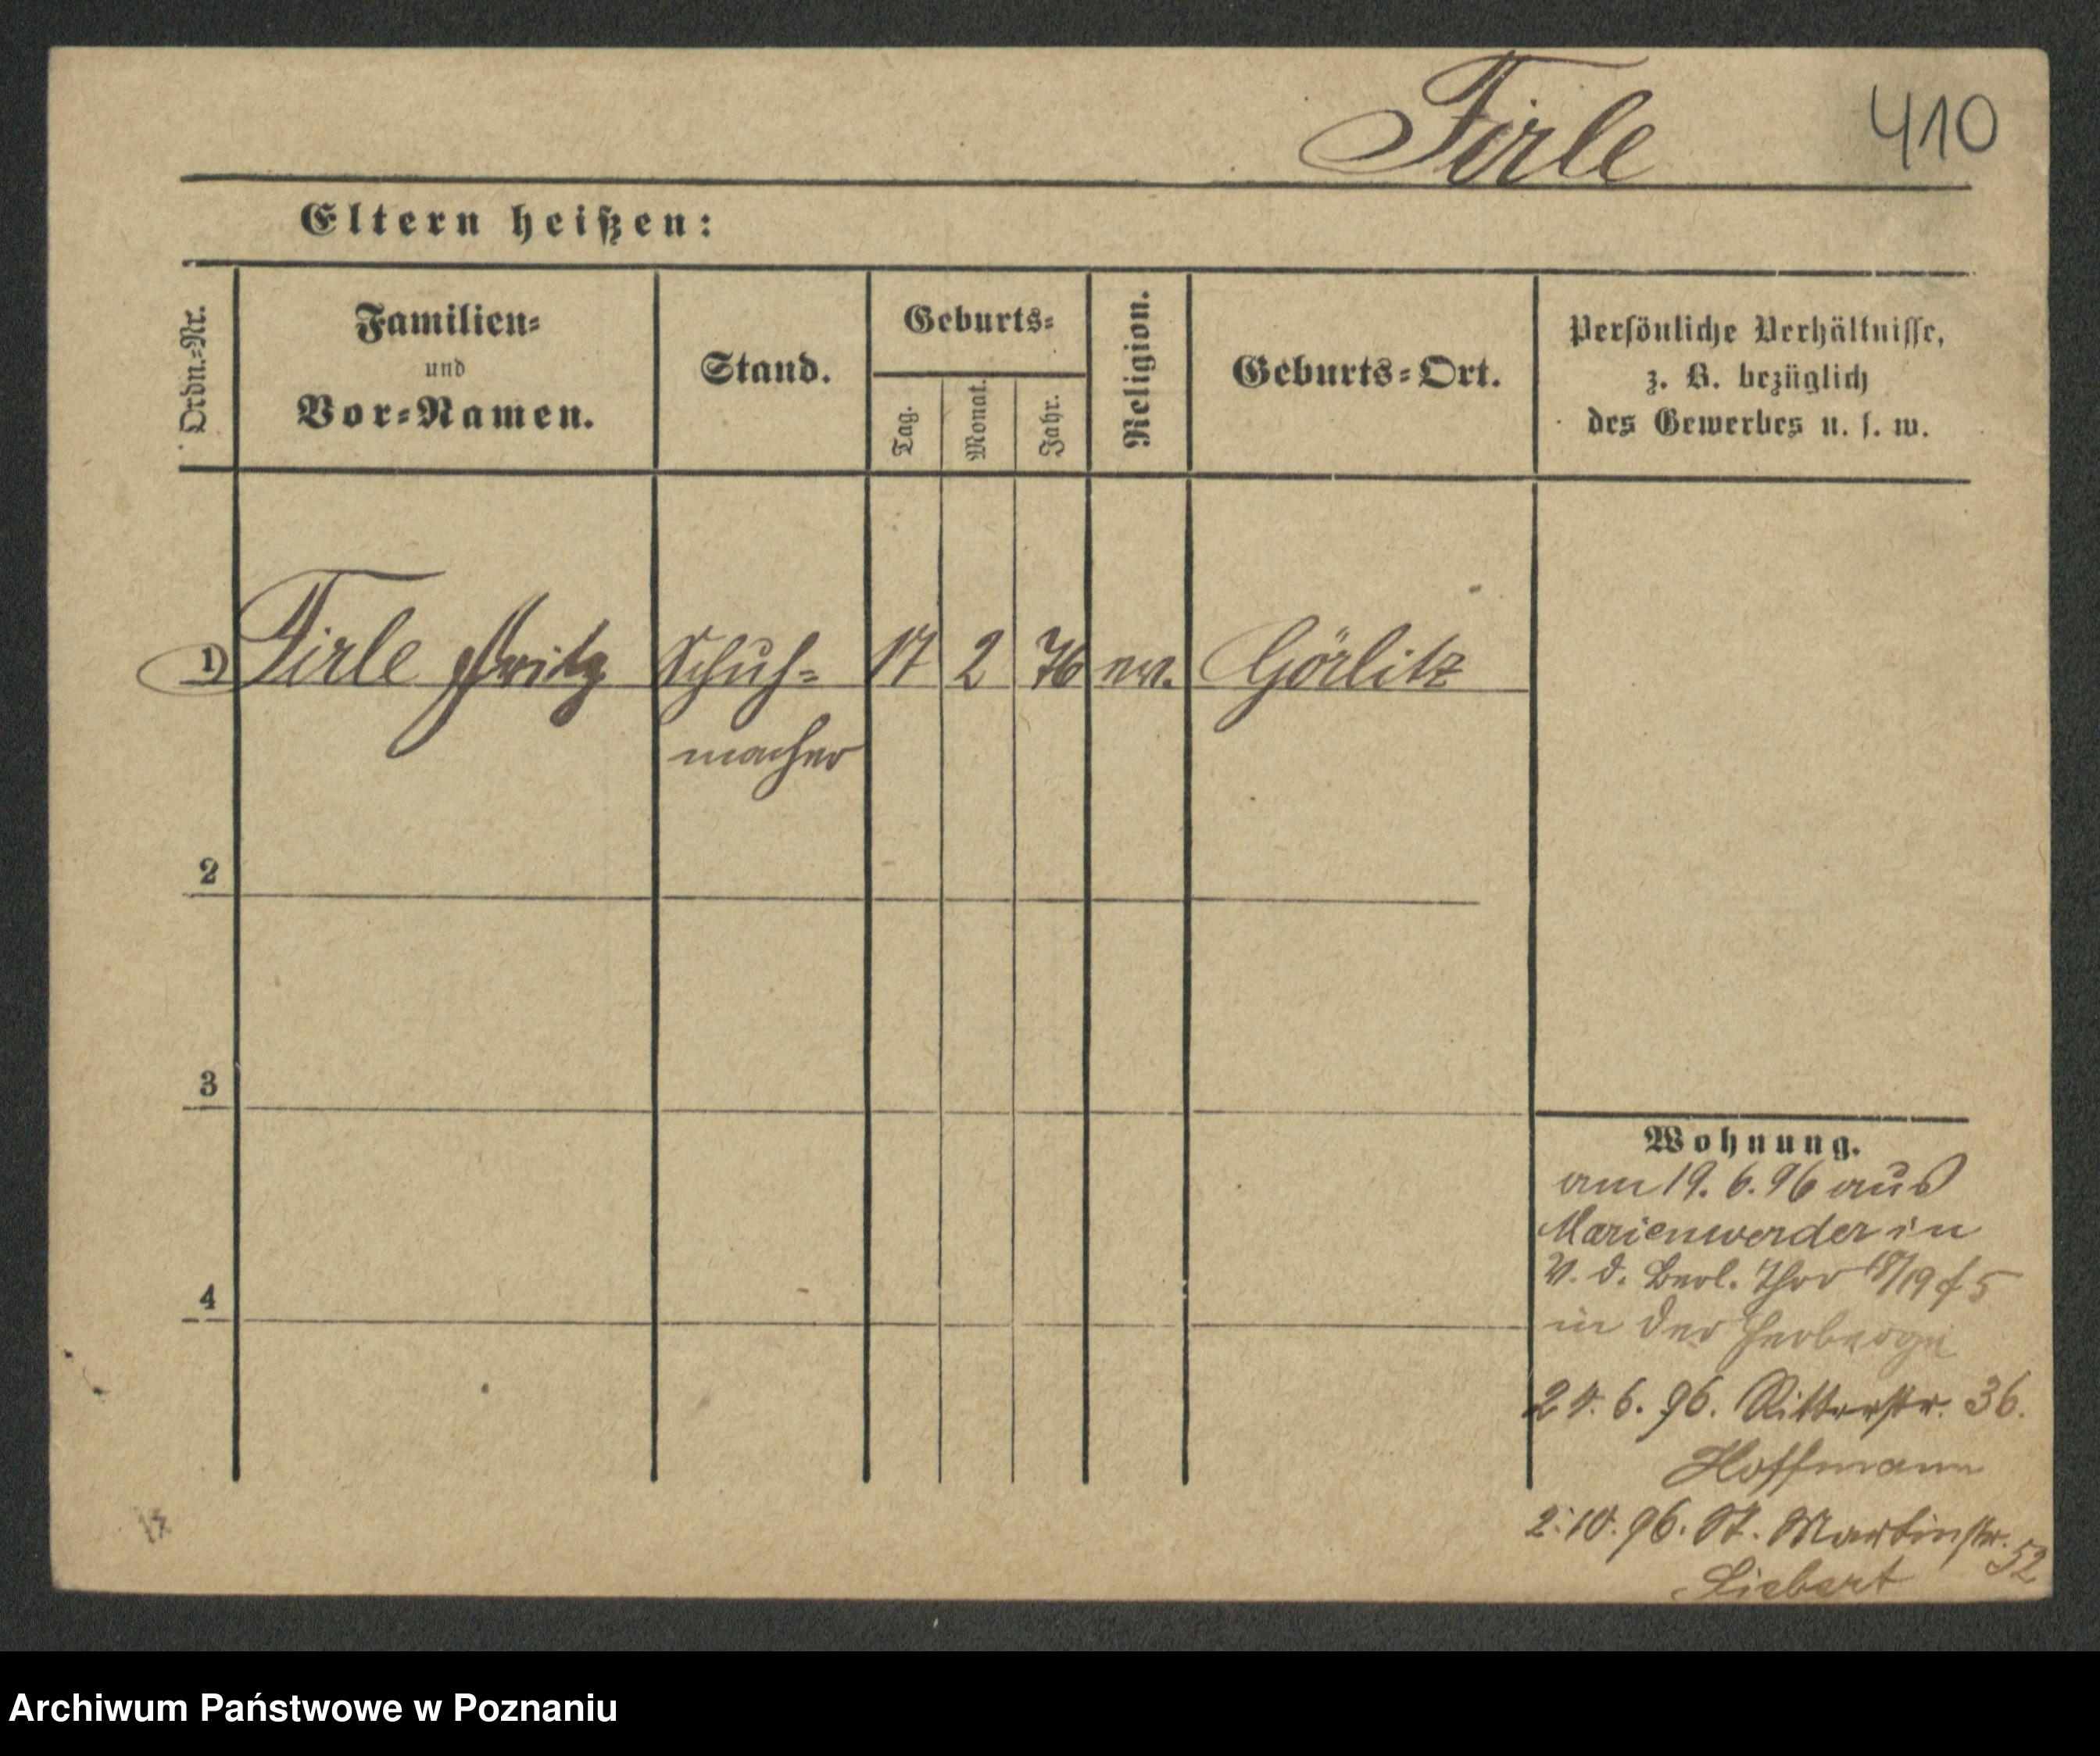 Firle
410
Eltern heißen:
Ordn.-Nr.
Familien-
und
Vor-Namen.
Stand.
Geburts-
Tag.
Monat.
Jahr.
Religion.
Geburts-Ort.
Persönliche Verhältnisse,
z. B. bezüglich
des Gewerbes u. s. w.
1) Firle Fritz Schuh= 17 2 76 ev. Görlitz
macher
2
3
4
Wohnung.
am 19. 6. 96 aus
Marienwerder in
V. d. Berl. Thor 18/19
in der Herberge
24. 6. 96. Ritterstr. 36.
Hoffmann
2. 10. 96. St. Martinstr. 52
Siebert
Archiwum Państwowe w Poznaniu